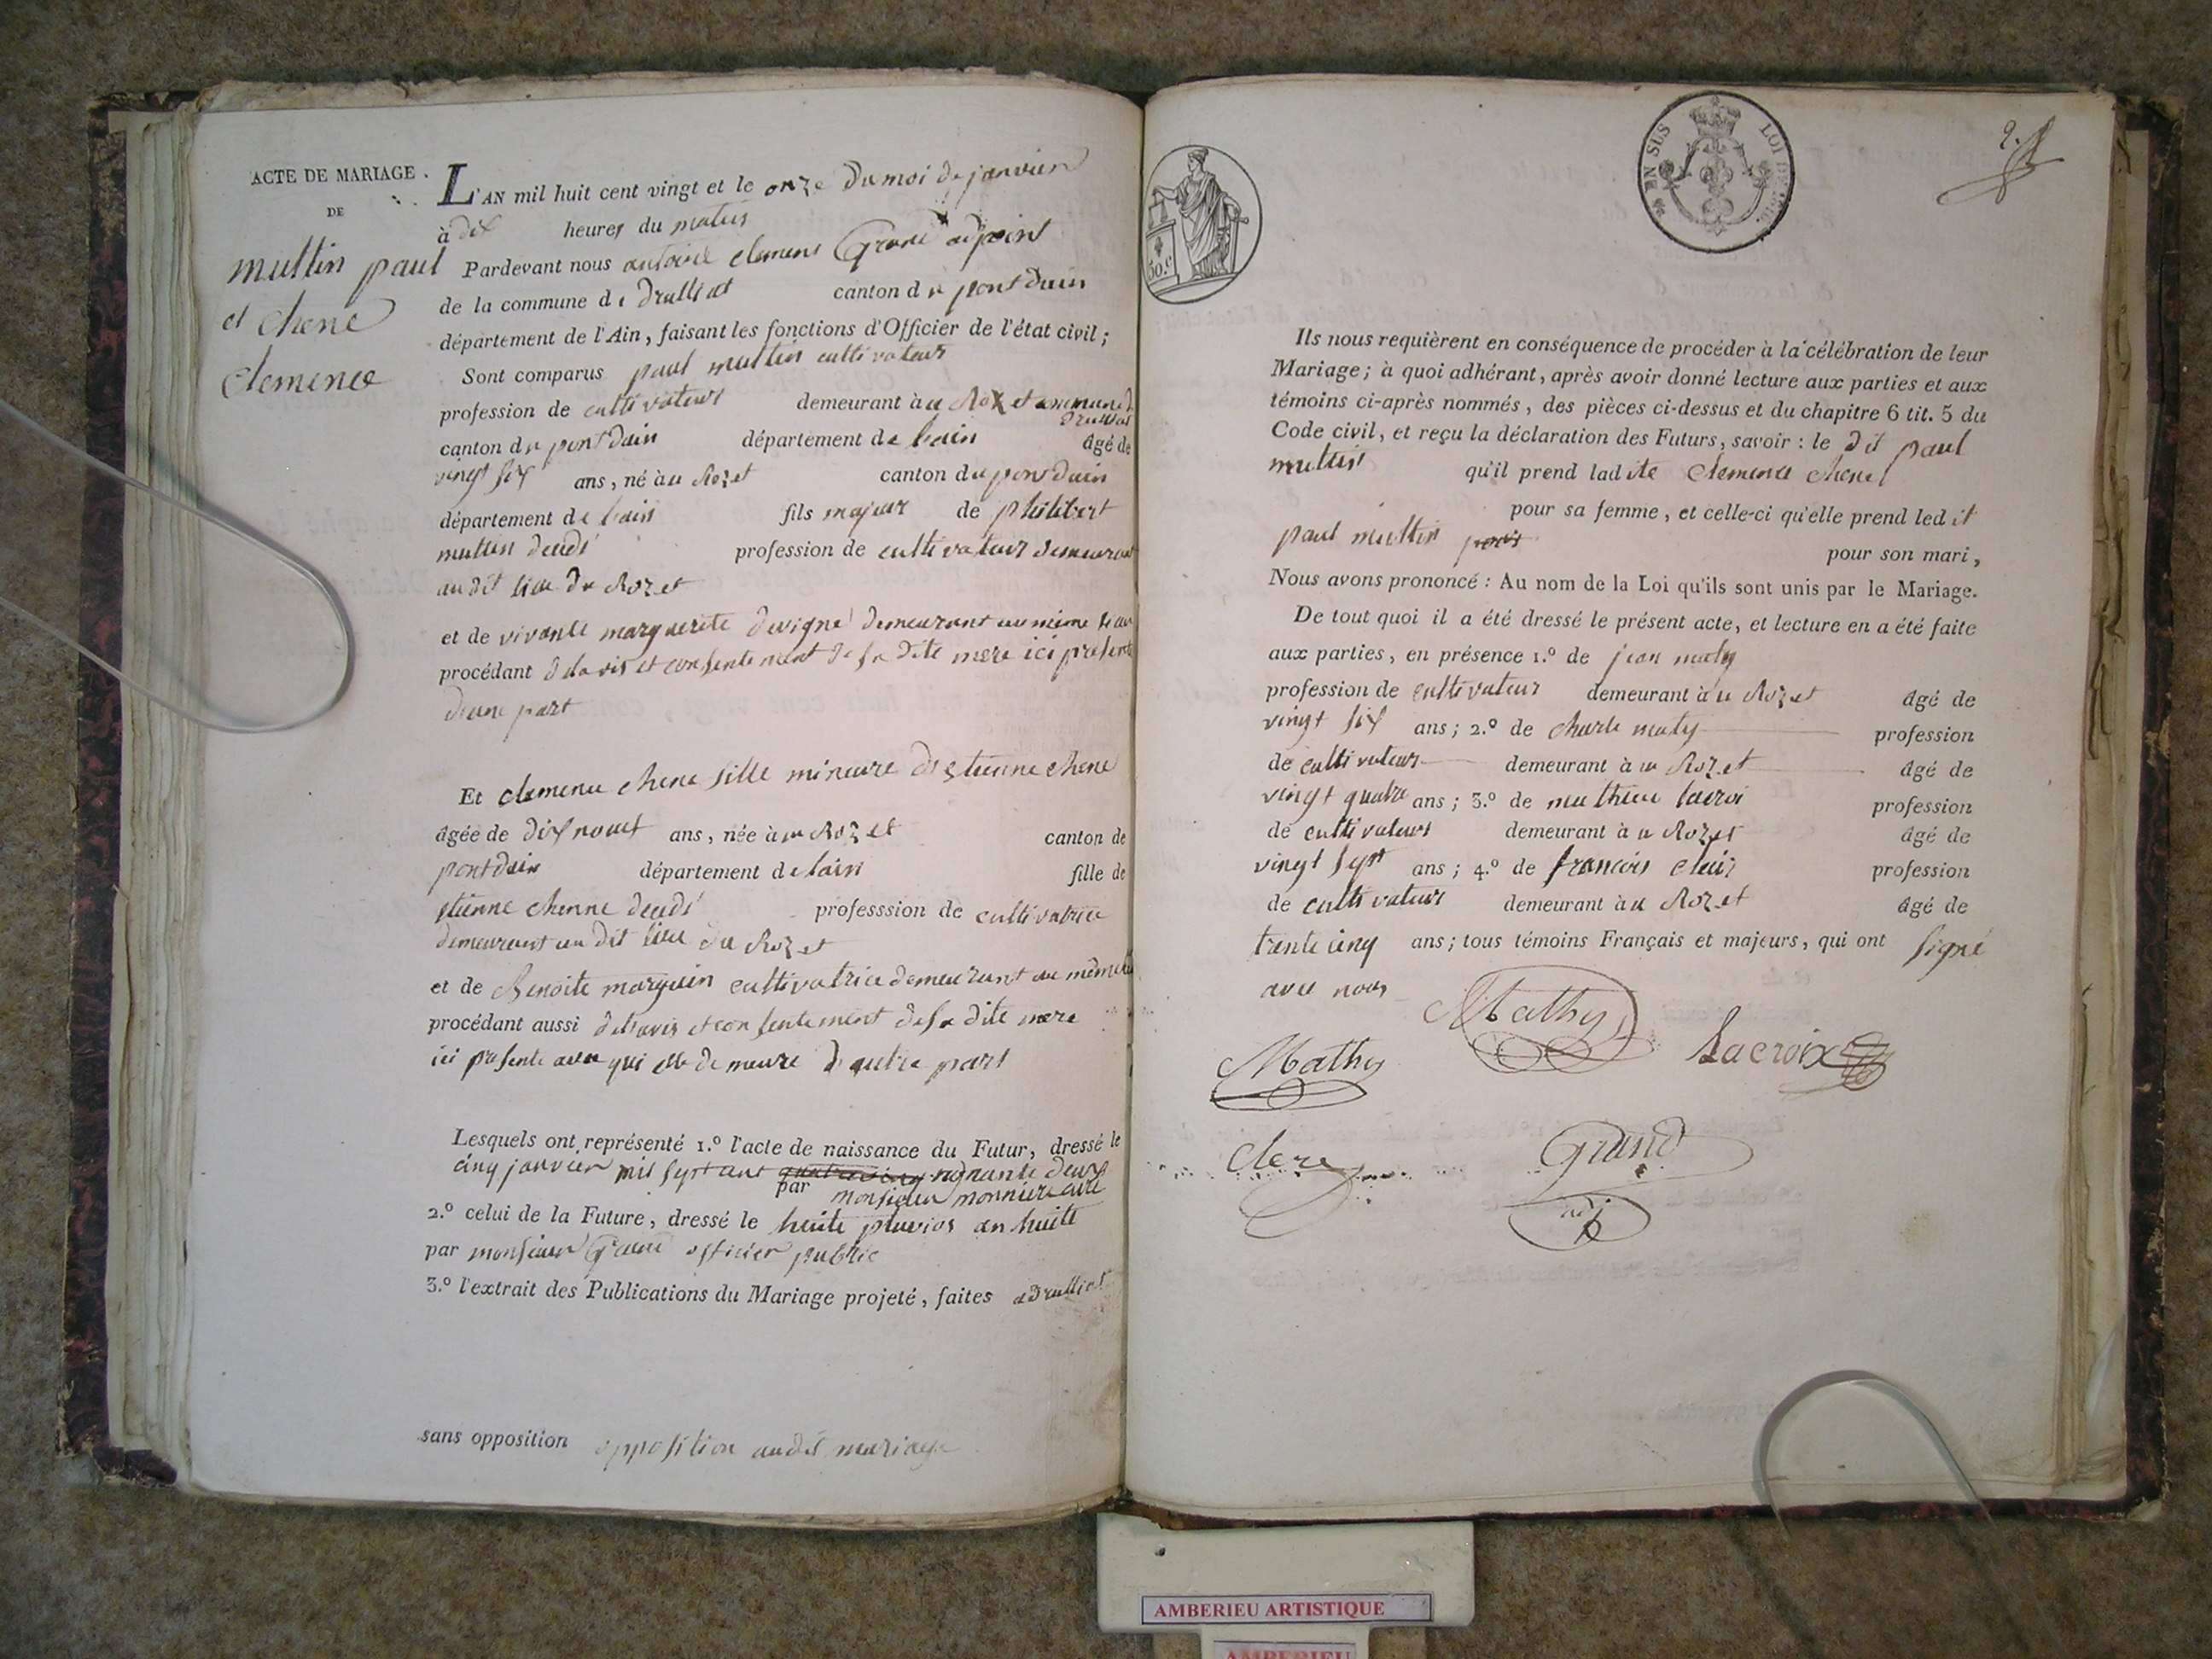 ACTE DE MARIAGE.
DE
mullin paul
et chene
clemence
L'AN mil huit cent vingt et le onze du moi de janvier
à dix heures du matin
Pardevant nous antoine clement Grand adjoint
de la commune de druillat canton de pont dain
département de l'Ain, faisant les fonctions d'Officier de l'état civil;
Sont comparus paul mullin cultivateur
profession de cultivateur demeurant à u Rozet commune de
druillat
canton de pont dain département de lain âgé de
vingt six ans, né à u Rozet canton de pont dain
département de lain fils majeur de philibert
mullin decede profession de cultivateur demeurant
au dit lieu du Rozet
et de vivante marguerite devigne demeurant au même lieu
procédant de lavis et consentement de sa dite mere ici presente
dune part
Et clemence chene fille mineure de etienne chene
âgée de dix nouf ans, née à u Rozet canton de
pont dain département de lain fille de
etienne chenne decede professsion de cultivatrice
demeurant au dit lieu du Rozet
et de Benoite marguin cultivatrice demeurant au même
procédant aussi de lavis et consentement de sa dite mere
ici presente avec qui elle demeure d autre part
Lesquels ont représenté 1.º l'acte de naissance du Futur, dressé le
cinq janvier mil sept cent quatre vingt nonante deux
par monsieur monnier cure
2.º celui de la Future, dressé le huite pluvios an huite
par monsieur Grand officier public
3.º l'extrait des Publications du Mariage projeté, faites a druillat
sans opposition opposition au dit mariage
EN SUS
LOI DE 1816
50.c
2.
Ils nous requièrent en conséquence de procéder à la célébration de leur
Mariage; à quoi adhérant, après avoir donné lecture aux parties et aux
témoins ci-après nommés, des pièces ci-dessus et du chapitre 6 tit. 5 du
Code civil, et reçu la déclaration des Futurs, savoir: le dit paul
mullin qu'il prend ladite clemence chene
pour sa femme, et celle-ci qu'elle prend ledit
paul mullin pour pour son mari,
Nous avons prononcé: Au nom de la Loi qu'ils sont unis par le Mariage.
De tout quoi il a été dressé le présent acte, et lecture en a été faite
aux parties, en présence 1.º de jean maty
profession de cultivateur demeurant à u Rozet âgé de
vingt six ans; 2.º de charle maty profession
de cultivateur demeurant à u Rozet âgé de
vingt quatre ans; 3.º de mathieu lacroi profession
de cultivateur demeurant à u Rozet âgé de
vingt sept ans; 4.º de francois clair profession
de cultivateur demeurant à u Rozet âgé de
trente cinq ans; tous témoins Français et majeurs, qui ont signé
avec nous
Mathy
Mathy
Lacroix
clere
Grand
adj
AMBERIEU ARTISTIQUE
AMBERIEU